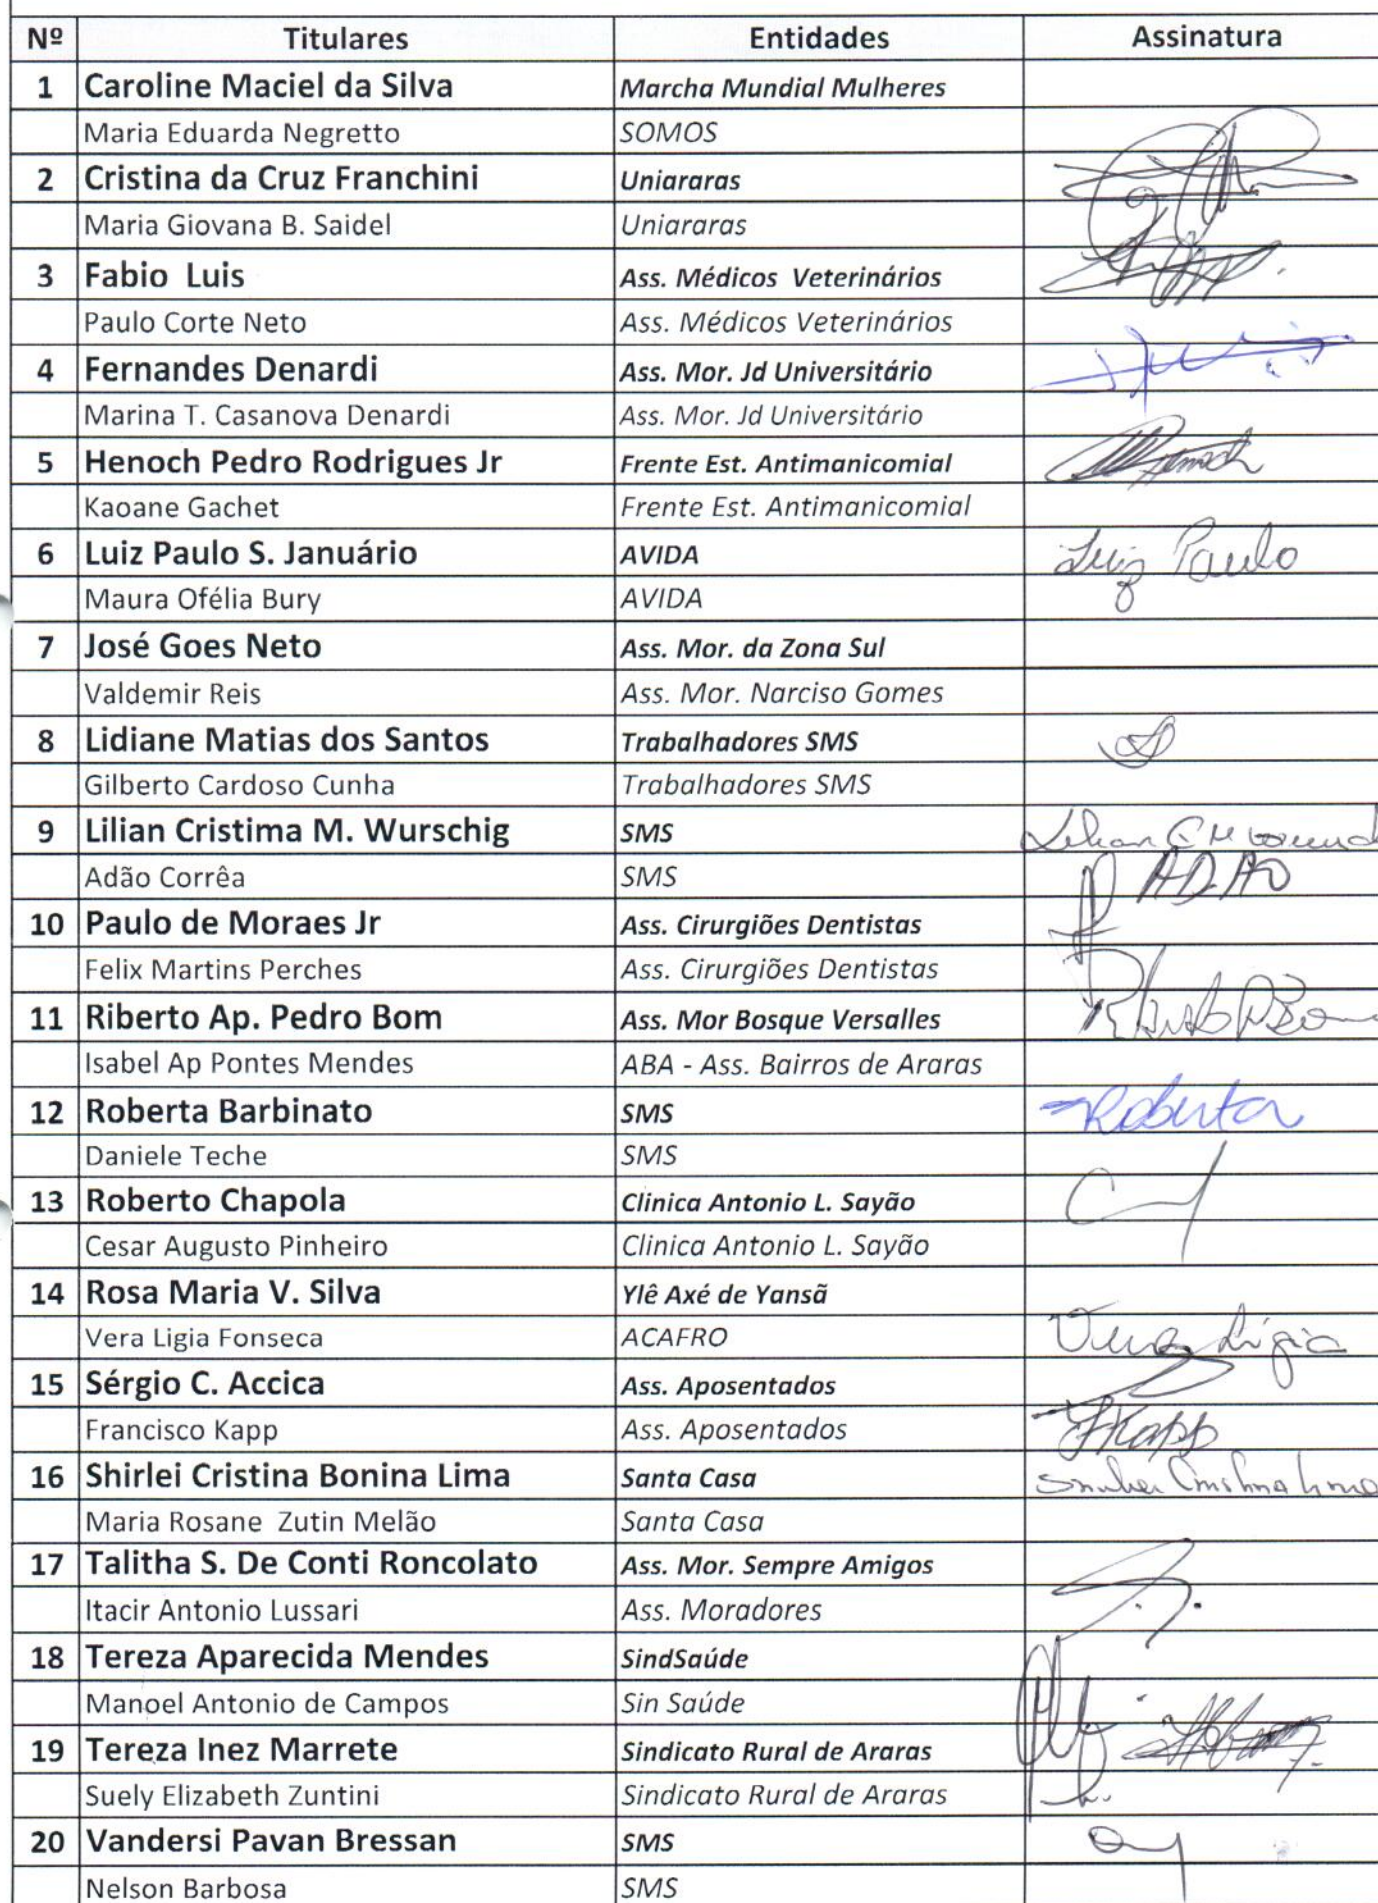 Nº Titulares Entidades Assinatura
1 Caroline Maciel da Silva Marcha Mundial Mulheres
Maria Eduarda Negretto SOMOS
2 Cristina da Cruz Franchini Uniararas
Maria Giovana B. Saidel Uniararas
3 Fabio Luis Ass. Médicos Veterinários
Paulo Corte Neto Ass. Médicos Veterinários
4 Fernandes Denardi Ass. Mor. Jd Universitário
Marina T. Casanova Denardi Ass. Mor. Jd Universitário
5 Henoch Pedro Rodrigues Jr Frente Est. Antimanicomial
Kaoane Gachet Frente Est. Antimanicomial
6 Luiz Paulo S. Januário AVIDA Luiz Paulo
Maura Ofélia Bury AVIDA
7 José Goes Neto Ass. Mor. da Zona Sul
Valdemir Reis Ass. Mor. Narciso Gomes
8 Lidiane Matias dos Santos Trabalhadores SMS
Gilberto Cardoso Cunha Trabalhadores SMS
9 Lilian Cristima M. Wurschig SMS
Adão Corrêa SMS ADAO
10 Paulo de Moraes Jr Ass. Cirurgiões Dentistas
Felix Martins Perches Ass. Cirurgiões Dentistas
11 Riberto Ap. Pedro Bom Ass. Mor Bosque Versalles
Isabel Ap Pontes Mendes ABA - Ass. Bairros de Araras
12 Roberta Barbinato SMS Roberta
Daniele Teche SMS
13 Roberto Chapola Clinica Antonio L. Sayão
Cesar Augusto Pinheiro Clinica Antonio L. Sayão
14 Rosa Maria V. Silva Ylê Axé de Yansã
Vera Ligia Fonseca ACAFRO Vera Lígia
15 Sérgio C. Accica Ass. Aposentados
Francisco Kapp Ass. Aposentados FKapp
16 Shirlei Cristina Bonina Lima Santa Casa
Maria Rosane Zutin Melão Santa Casa
17 Talitha S. De Conti Roncolato Ass. Mor. Sempre Amigos
Itacir Antonio Lussari Ass. Moradores
18 Tereza Aparecida Mendes SindSaúde
Manoel Antonio de Campos Sin Saúde
19 Tereza Inez Marrete Sindicato Rural de Araras
Suely Elizabeth Zuntini Sindicato Rural de Araras
20 Vandersi Pavan Bressan SMS
Nelson Barbosa SMS